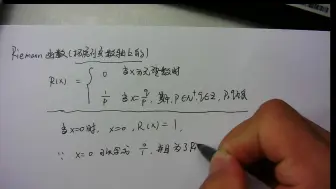 Riemann 函数(拓展到实数轴上的)
R(x) = { 0 当x为无理数时
1/p 当x=q/p, 其中, p∈N⁺, q∈Z, p,q互质
当x=0时, x=0, R(x)=1,
∵ x=0 可以写为 0/1, 并且为了